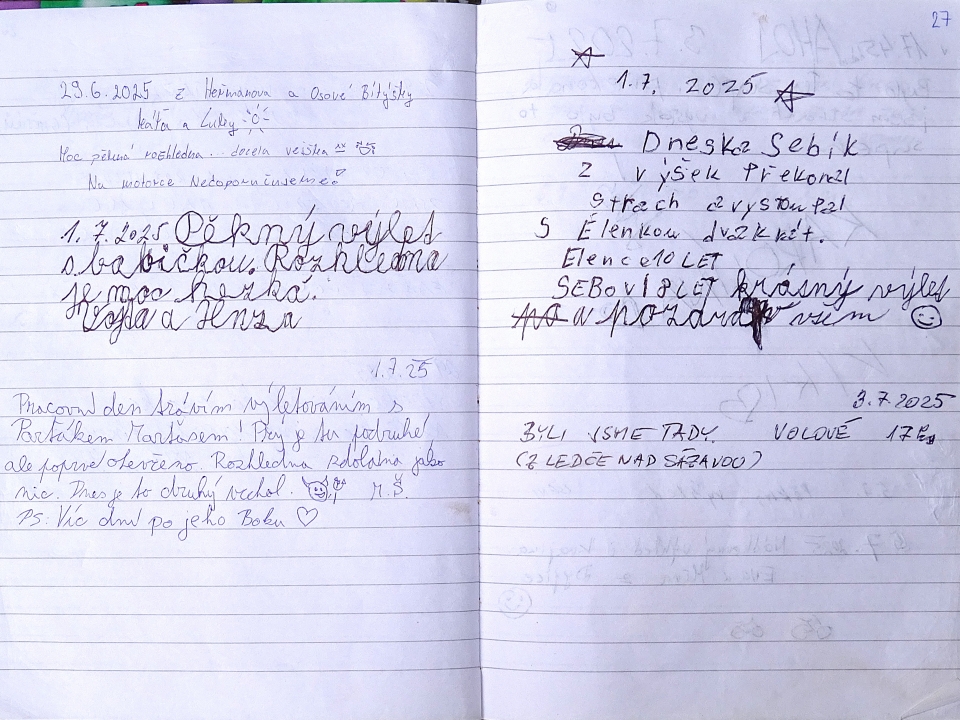 29.6.2025 z Heřmanova a Osové Bítýšky
Káťa a Lukeš
Moc pěkná rozhledna... docela vejška
Na motorce Nedoporučujeme!
1.7.2025 Pěkný výlet
s babičkou. Rozhledna
je moc hezká.
Vojta a Honza
1.7.25
Pracovní den trávím výletováním s
Parťákem Marťasem! Prý je tu podruhé
ale poprvé otevřeno. Rozhledna zdolatna jako
nic. Dnes je to druhý vrchol. M.Š.
PS: Víc dní po jeho Boku ♡
27
1.7. 2025
Dneska Sebík
z výšek Překonal
Strach a vystoupal
S Élenkou dvakrát.
Elence 10 LET
SEBOVI 8 LET krásný výlet
a pozdrav všem ☺
3.7.2025
BYLI JSME TADY. VOLOVÉ
(Z LEDČE NAD SÁZAVOU)